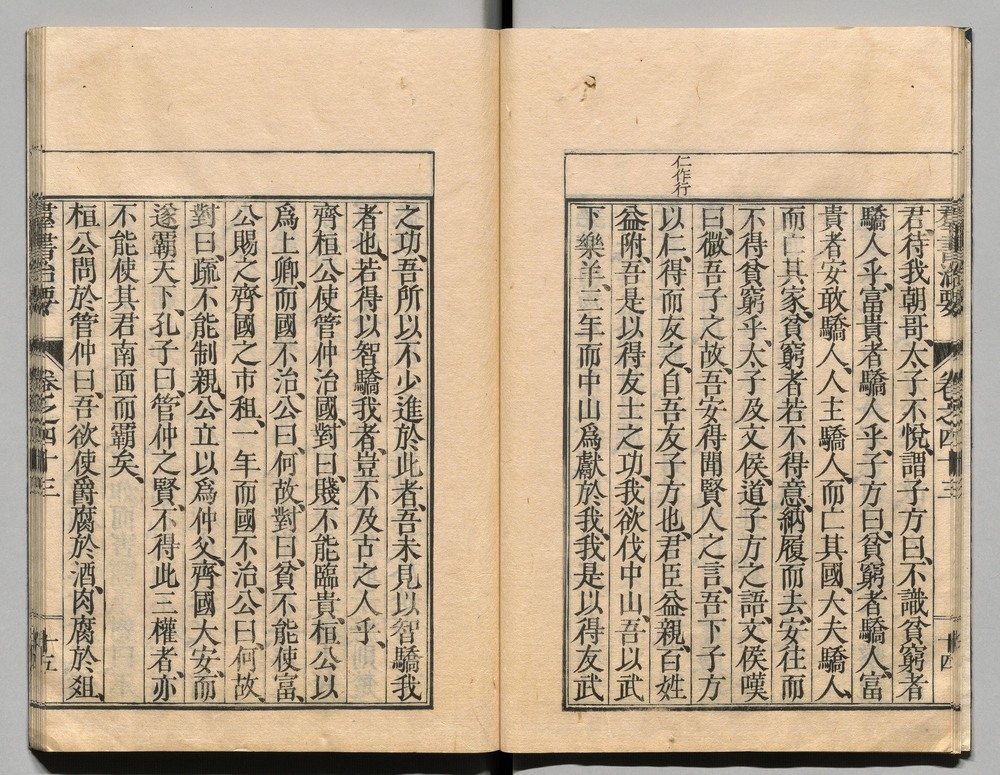 仁作行
君、待我朝哥、太子不悅、謂子方曰、不識貧窮者
驕人乎、富貴者驕人乎、子方曰、貧窮者驕人、富
貴者安敢驕人、人主驕人、而亡其國、大夫驕人、
而亡其家、貧窮者若不得意、納履而去、安往而
不得貧窮乎、太子及文侯道子方之語、文侯嘆
曰、微吾子之故、吾安得聞賢人之言、吾下子方
以仁、得而友之、自吾友子方也、君臣益親、百姓
益附、吾是以得友士之功、我欲伐中山、吾以武
下樂羊、三年而中山爲獻於我、我是以得友武
群書治要 卷之四十三 十四
之功、吾所以不少進於此者、吾未見以智驕我
者也、若得以智驕我者、豈不及古之人乎、
齊桓公使管仲治國、對曰、賤不能臨貴、桓公以
爲上卿、而國不治、公曰、何故、對曰、貧不能使富、
公賜之齊國之市租、一年而國不治、公曰、何故、
對曰、疏不能制親、公立以爲仲父、齊國大安、而
遂霸天下、孔子曰、管仲之賢、不得此三權者、亦
不能使其君南面而霸矣、
桓公問於管仲曰、吾欲使爵腐於酒、肉腐於俎、
群書治要 卷之四十三 十五